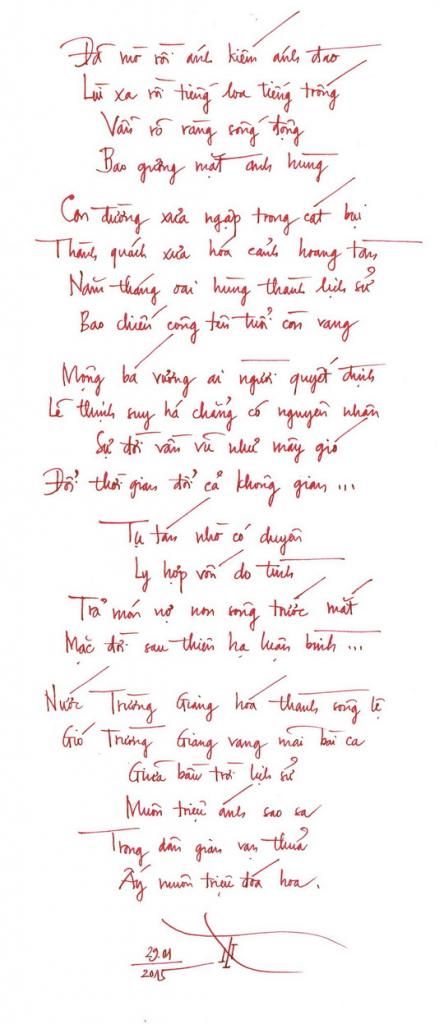 Đã mờ rồi ánh kiếm ánh đao
Lùi xa rồi tiếng loa tiếng trống
Vẫn rõ ràng sống động
Bao gương mặt anh hùng
Con đường xưa ngập trong cát bụi
Thành quách xưa hóa cảnh hoang tàn
Năm tháng oai hùng thành lịch sử
Bao chiến công tên tuổi còn vang
Mộng bá vương ai người quyết định
Lẽ thịnh suy há chẳng có nguyên nhân
Sự đời vần vũ như mây gió
Đổi thời gian đổi cả không gian ...
Tụ tán nhờ có duyên
Ly hợp vốn do tình
Trả món nợ non sông trước mắt
Mặc đời sau thiên hạ luận bình ...
Nước Trường Giang hóa thành sông lệ
Gió Trường Giang vang mãi bài ca
Giữa bầu trời lịch sử
Muôn triệu ánh sao sa
Trong dân gian vạn thuở
Ấy muôn triệu đóa hoa.
29.01
2015